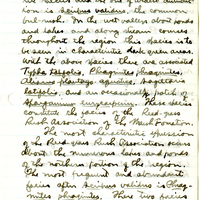 the species and the one of wider distribu-
tion is Scirpus validus, the common
bul-rush. On the wet valleys about ponds
and lakes and along stream courses
throughout the region this species is to
be seen in characteristic dark green areas.
With the above species there are associated
Typha latifolia, Phragmites phragmites,
Alisma plantago-aquatica, Sagittaria
latifolia, and an occasional patch of
Sparganium eurycarpum. These species
constitute the facies of the Reed-grass
Rush Association of the Marsh Formation.
The most characteristic expression
of the Reed-grass Rush Association occurs
about the numerous lakes and ponds
of the northern portion of the region.
The most frequent and abundant
facies after Scirpus validus is Phrag-
mites phragmites. These two facies